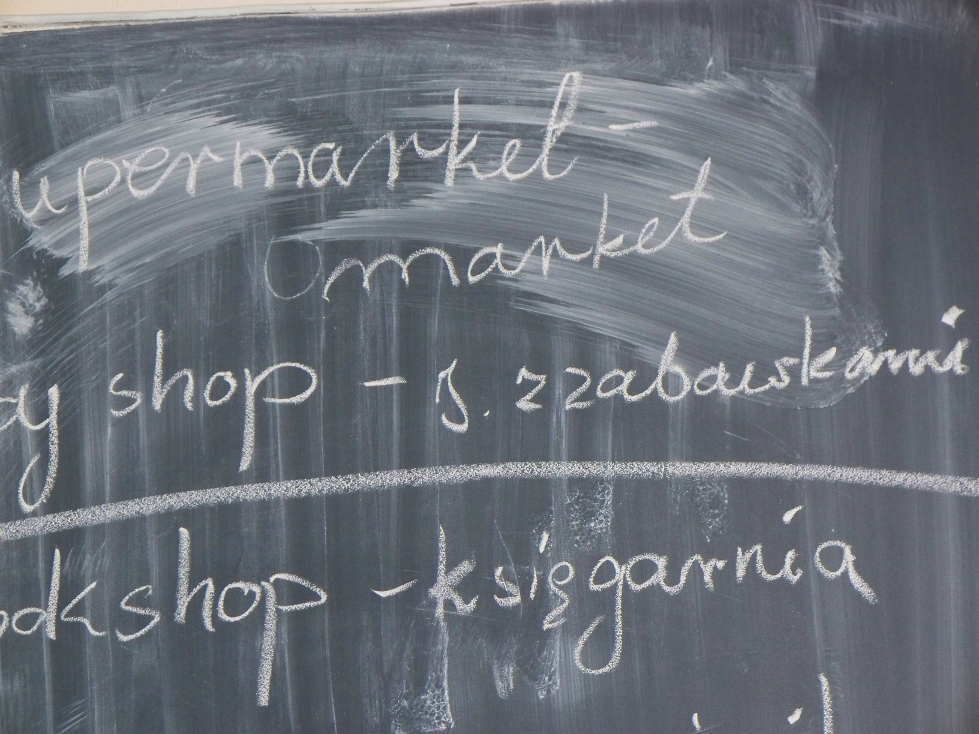 upermarket -
market
oy shop - s. z zabawkami
ookshop - księgarnia